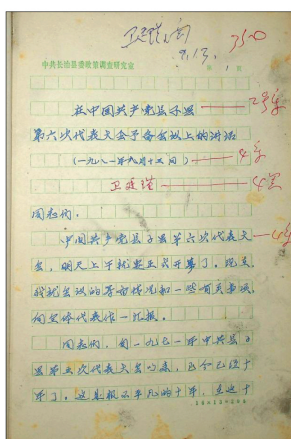 卫廷瑄阅
9.13
350
中共长治县委政策调查研究室
第 1 页
在中国共产党长子县 2号宋
第六次代表大会预备会议上的讲话 4宋
(一九八一年九月十三日) 4宋
卫廷瑄 4黑
同志们:
中国共产党长子县第六次代表大 4宋
会,明天上午就要正式开幕了。现在
我就会议的筹备情况和一些有关事项
向全体代表作一汇报。
同志们,自一九七一年中共长子
县第五次代表大会以来,已经已经十
年了。这是极不平凡的十年,在这十